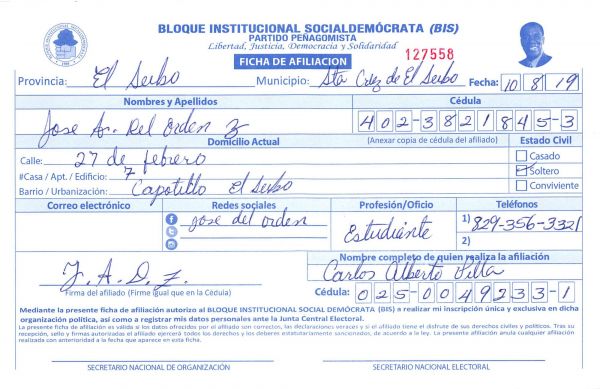 BLOQUE INSTITUCIONAL SOCIALDEMÓCRATA (BIS)
PARTIDO PEÑAGOMISTA
Libertad, Justicia, Democracia y Solidaridad
FICHA DE AFILIACION 127558
Provincia: El Seibo Municipio: Sta Cruz de El Seibo Fecha: 10 / 8 / 19
Nombres y Apellidos Cédula
Jose A. Del Orden Z 402-3821845-3
Domicilio Actual (Anexar copia de cédula del afiliado) Estado Civil
Calle: 27 de febrero Casado
#Casa / Apt. / Edificio: 7 Soltero
Barrio / Urbanización: Capotillo El Seibo Conviviente
Correo electrónico Redes sociales Profesión/Oficio Teléfonos
jose del orden Estudiante 1) 829-356-3321
2)
Nombre completo de quien realiza la afiliación
J. A. D. Z. Carlos Alberto
Firma del afiliado (Firme igual que en la Cédula) Cédula: 025-0049233-1
Mediante la presente ficha de afiliación autorizo al BLOQUE INSTITUCIONAL SOCIAL DEMÓCRATA (BIS) a realizar mi inscripción única y exclusiva en dicha
organización política, así como a registrar mis datos personales ante la Junta Central Electoral.
La presente ficha de afiliación es válida si los datos ofrecidos por el afiliado son correctos, las declaraciones veraces y si el afiliado tiene el disfrute de sus derechos civiles y políticos. Tras su
recepción, sello y firmas autorizadas el afiliado ejercerá todos los derechos y los deberes estatutariamente sancionados, de acuerdo a la ley. La presente afiliación anula cualquier afiliación
realizada con anterioridad a la fecha que aparece en esta ficha.
SECRETARIO NACIONAL DE ORGANIZACIÓN SECRETARIO NACIONAL ELECTORAL